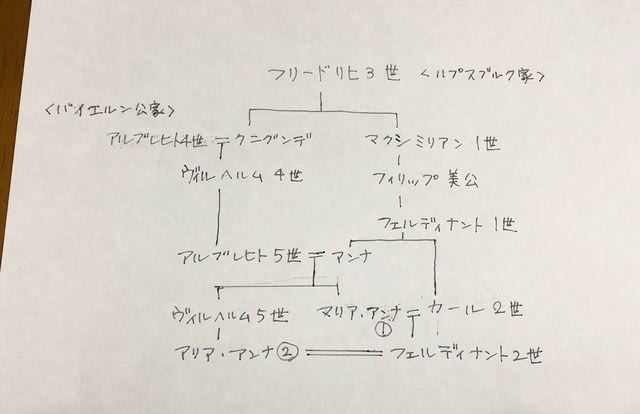 フリードリヒ3世 〈ハプスブルク家〉
〈バイエルン公家〉
アルブレヒト4世 = クニグンデ マクシミリアン1世
ヴィルヘルム4世 フィリップ美公
フェルディナント1世
アルブレヒト5世 = アンナ
ヴィルヘルム5世 マリア・アンナ① = カール2世
アリア・アンナ② = フェルディナント2世